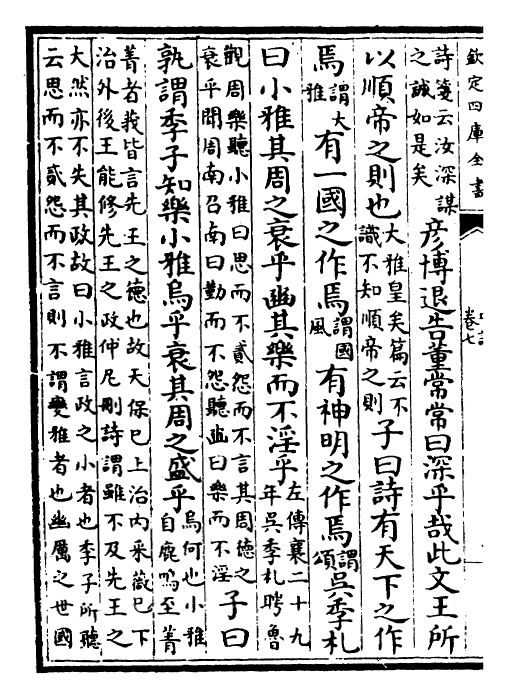 欽定四庫全書
卷七
詩箋云汝深謀
之誠如是矣
彦博退告董常常曰深乎哉此文王所
以順帝之則也
大雅皇矣篇云不
識不知順帝之則
子曰詩有天下之作
焉
謂大
雅
有一國之作焉
謂國
風
有神明之作焉
謂
頌
吳季札
曰小雅其周之衰乎豳其樂而不淫乎
左傳襄二十九
年吳季札聘魯
觀周樂聽小雅曰思而不貳怨而不言其周德之
衰乎聞周南召南曰勤而不怨聽豳曰樂而不淫
子曰
孰謂季子知樂小雅烏乎衰其周之盛乎
烏何也小雅
自鹿鳴至菁
菁者莪皆言先王之德也故天保已上治内采薇已下
治外後王能修先王之政仲尼刪詩謂雖不及先王之
大然亦不失其政故曰小雅言政之小者也季子所聽
云思而不貳怨而不言則不謂變雅者也幽厲之世國